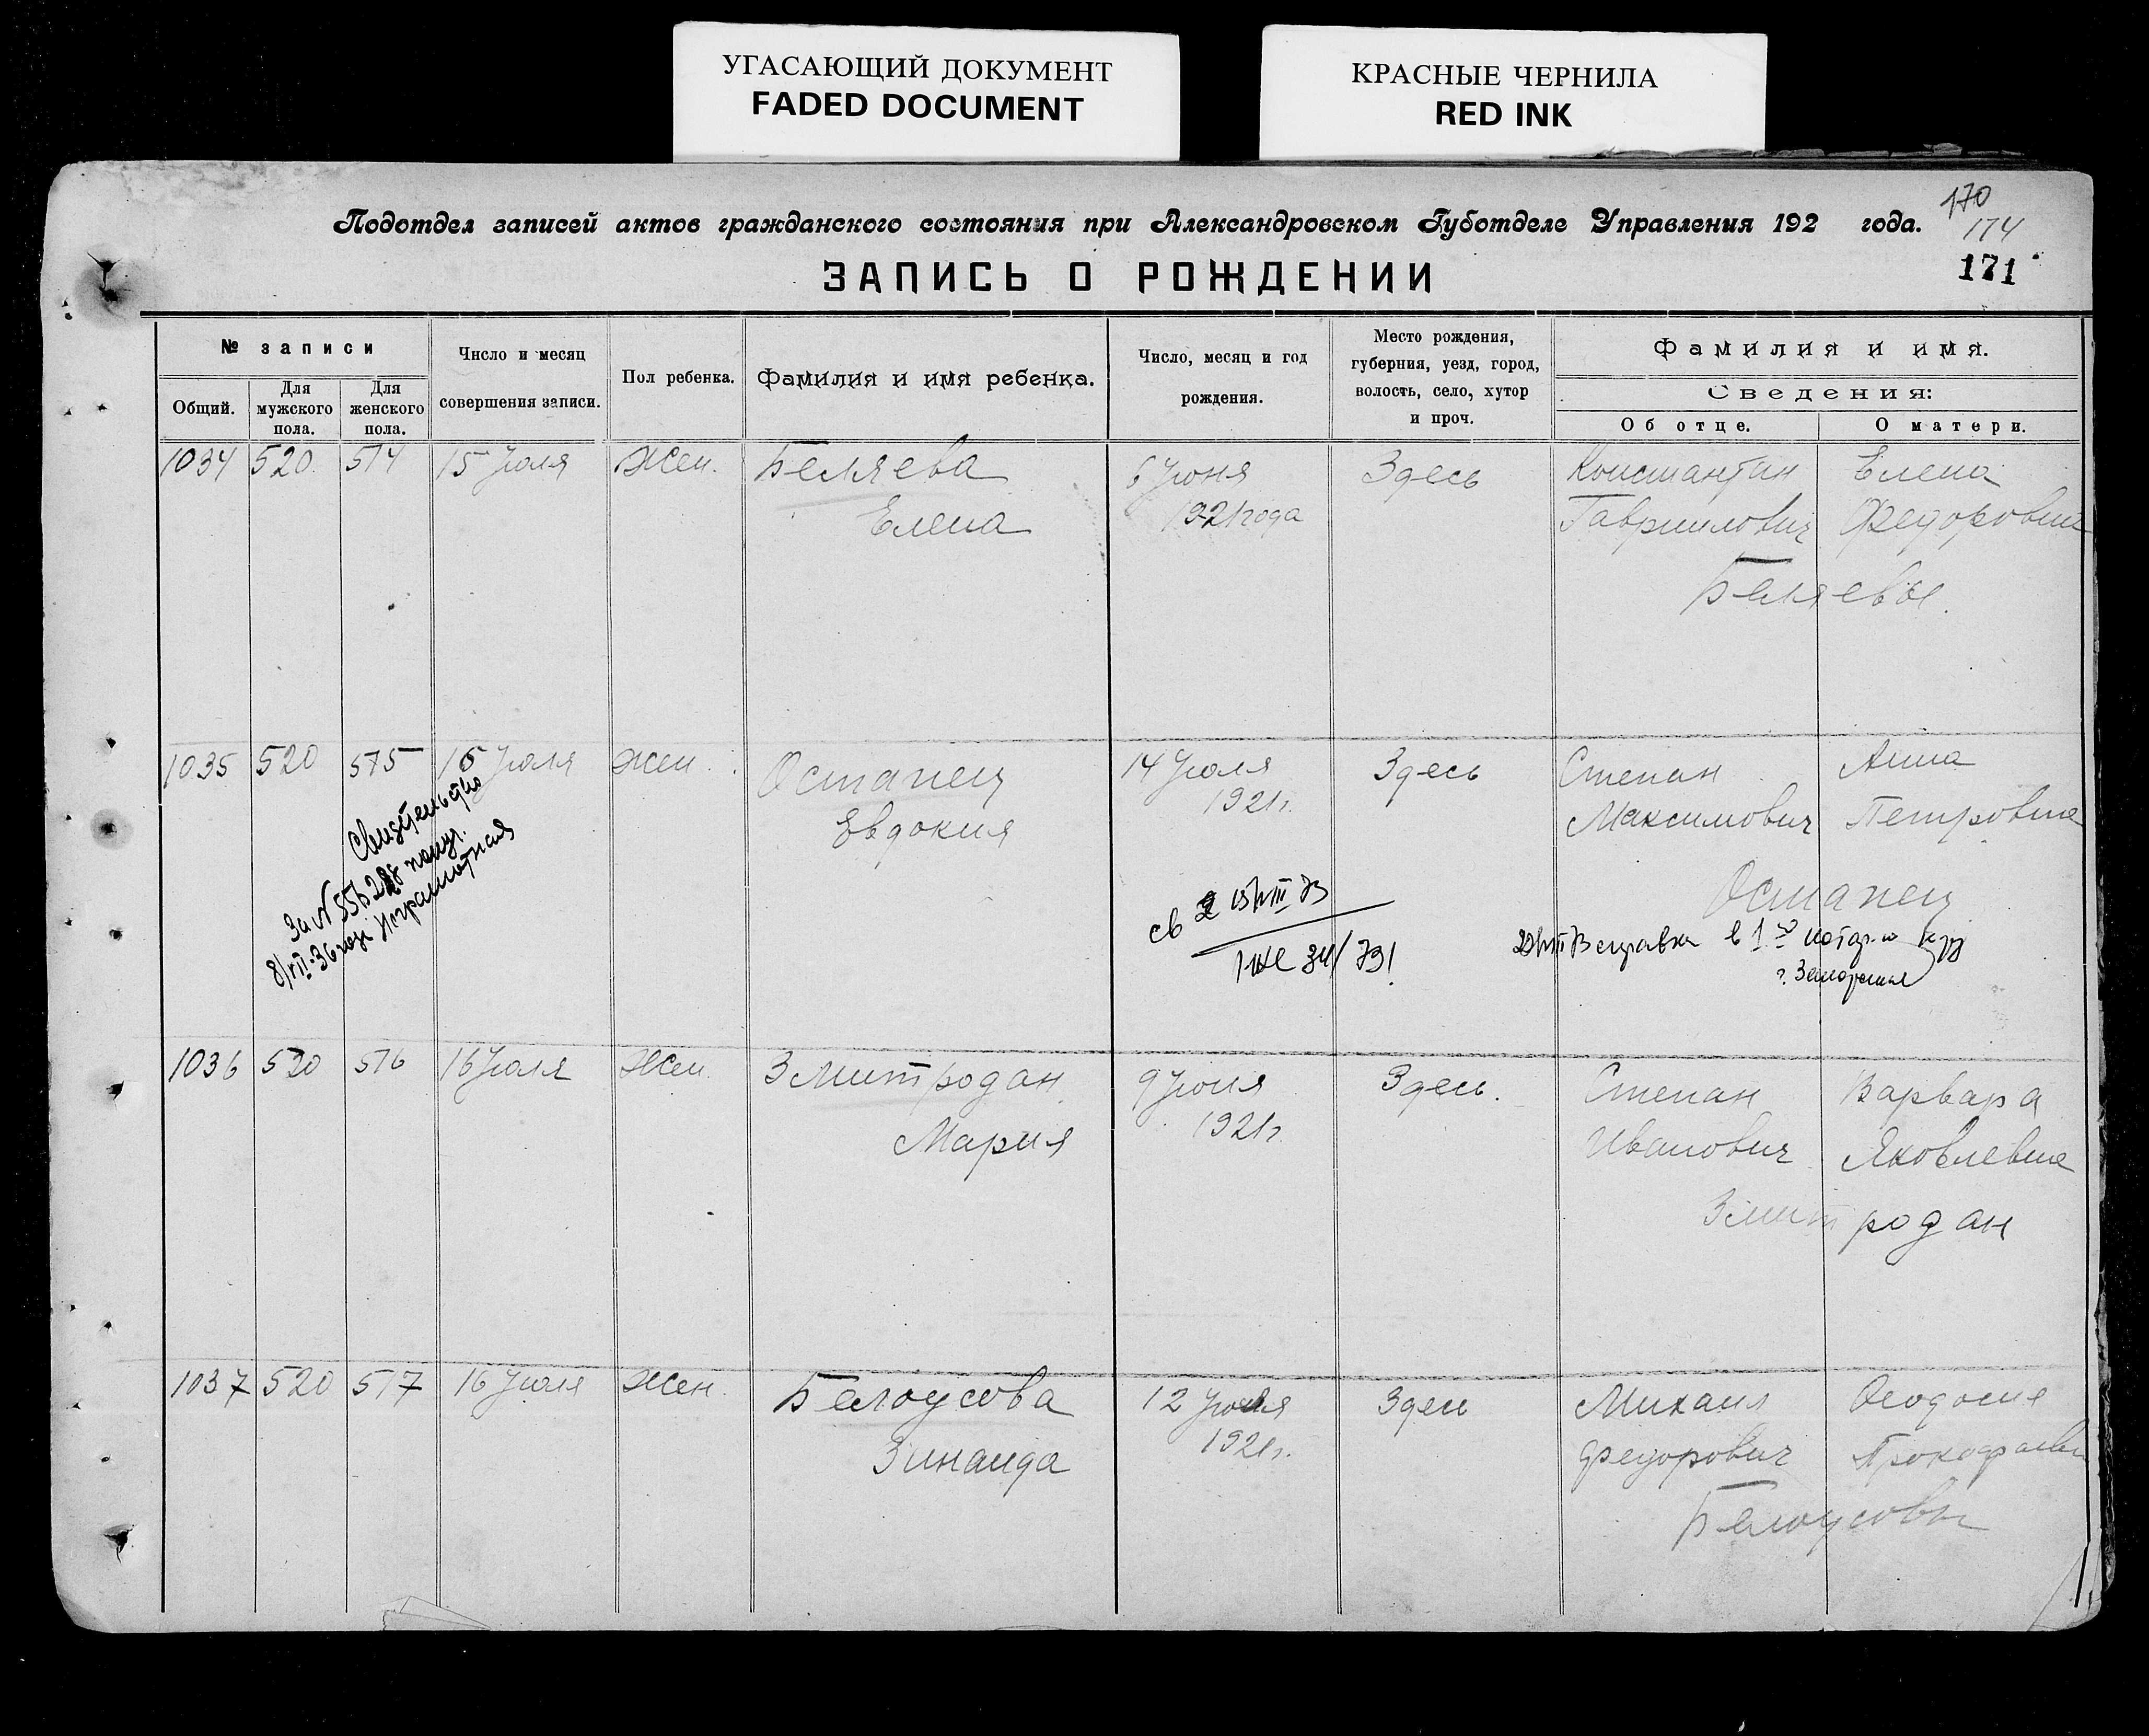 УГАСАЮЩИЙ ДОКУМЕНТ
FADED DOCUMENT
КРАСНЫЕ ЧЕРНИЛА
RED INK
170
174
171
Подотдел записей актов гражданского состояния при Александровском Губотделе Управления 192 года.
ЗАПИСЬ О РОЖДЕНИИ
№ записи
Общий.
Для мужского пола.
Для женского пола.
Число и месяц совершения записи.
Пол ребенка.
Фамилия и имя ребенка.
Число, месяц и год рождения.
Место рождения, губерния, уезд, город, волость, село, хутор и проч.
Фамилия и имя.
Сведения:
Об отце.
О матери.
1034 520 574 15 Июля Жен. Беляева Июня Здесь Константин Елена
Елена 1921 года Гавриилович Федоровна
Беляевы.
1035 520 575 15 Июля Жен. Остапец 14 Июля Здесь Степан Анна
Евдокия 1921 г. Максимович Петровна
Остапец
Свидетельство
за №
Неграмотная
св
Справка в 1
г. Запорожья
1036 520 576 16 Июля Жен. Змитродан 9 Июля Здесь. Степан Варвара
Мария 1921 г. Иванович Яковлевна
Змитродан
1037 520 577 16 Июля Жен. Белоусова 12 Здесь Михаил Феодосия
Зинаида 1921 г. Федорович
Белоусовы